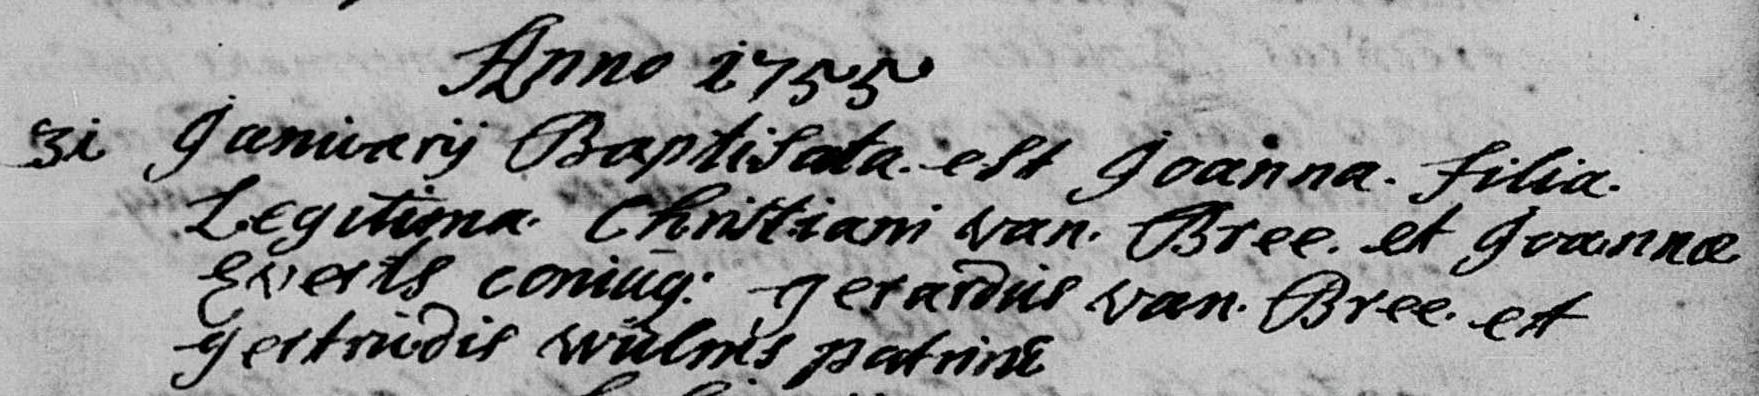 Anno 1755
31 Januarij Baptisata. est Joanna. filia.
Legitima. Christiani van. Bree. et Joannæ
Everts coniug: gerardus van. Bree. et
gertrudis wulms patrini